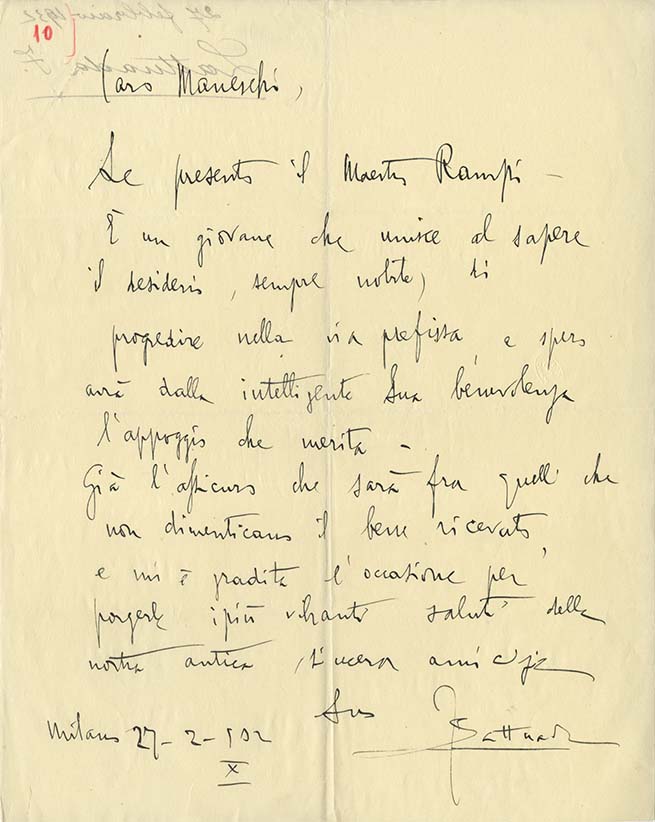 27 febbraio 1932
10
Lattuada F.
Caro Maneschi,
Le presento il Maestro Rampi –
È un giovane che unisce al sapere
il desiderio, sempre nobile, di
progredire nella via prefissa e spero
avrà dalla intelligente Sua benevolenza
l'appoggio che merita –
Già l'assicuro che sarà fra quelli che
non dimenticano il bene ricevuto
e mi è gradita l'occasione per
porgerle i più vibranti saluti della
nostra antica, sincera amicizia
Suo
FLattuada
Milano 27-2-932
X